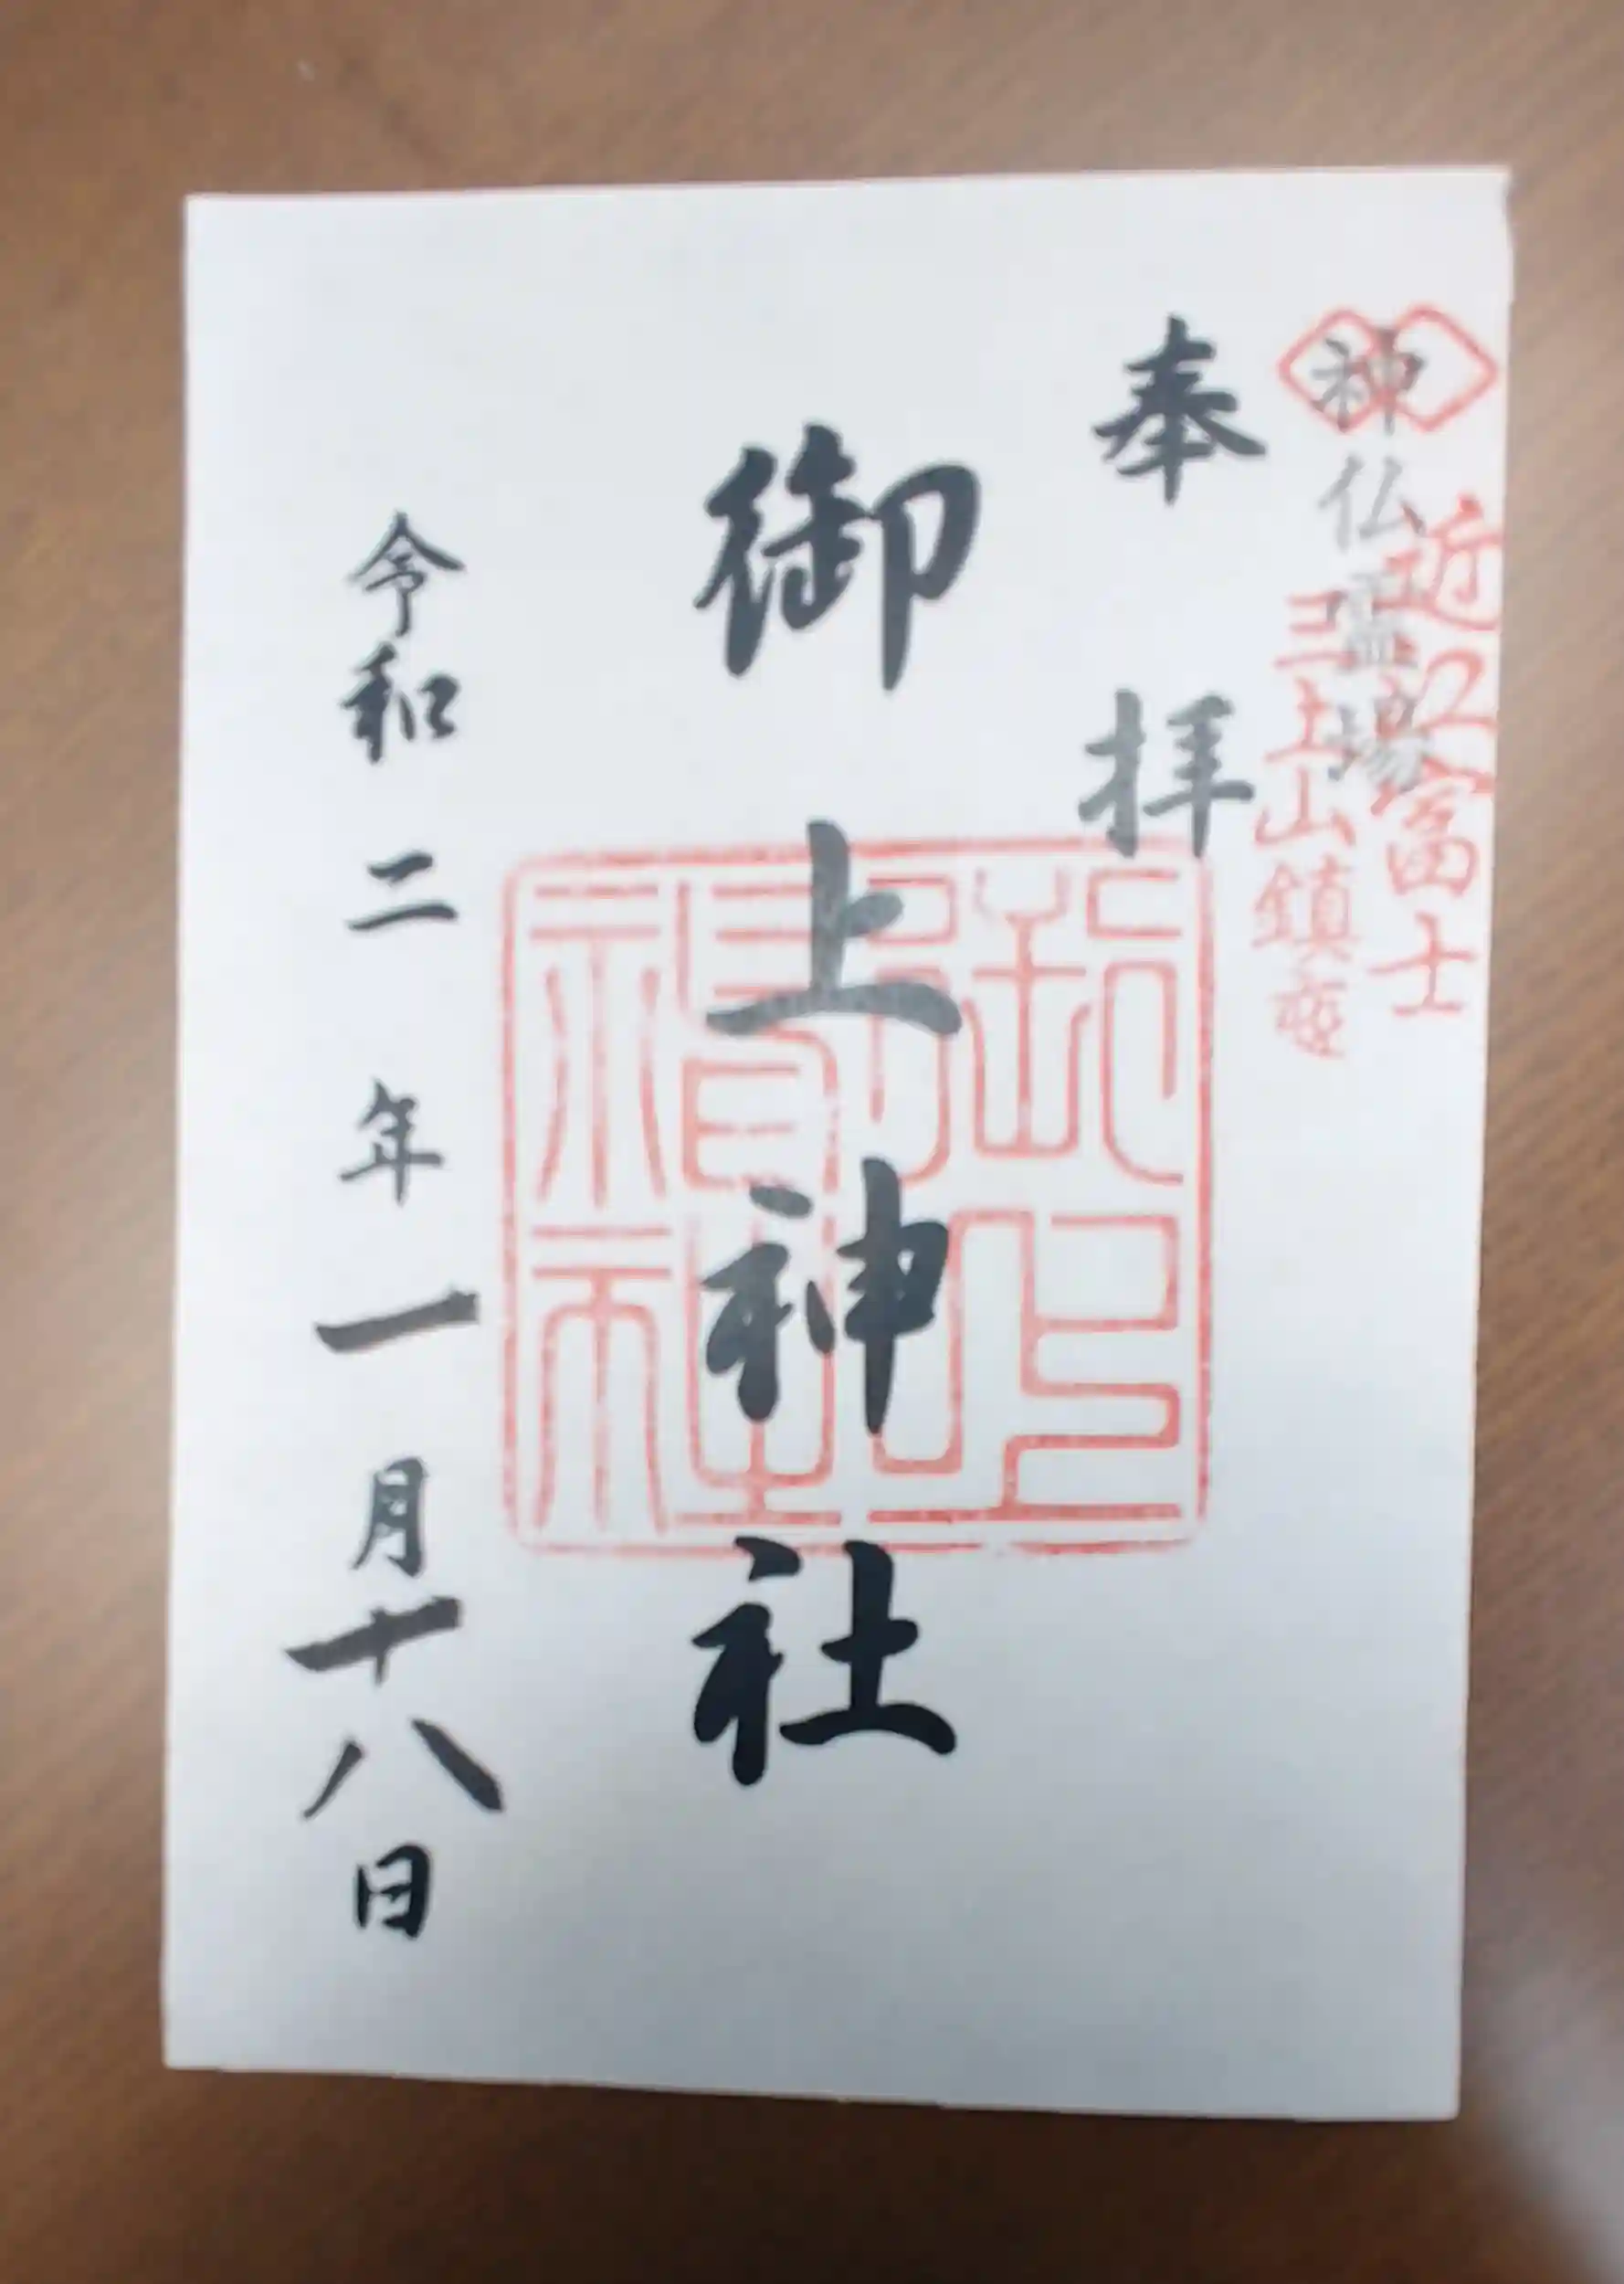 近江富士
神仏霊場
三上山鎮座
奉拝
御上神社
令和二年一月十八日